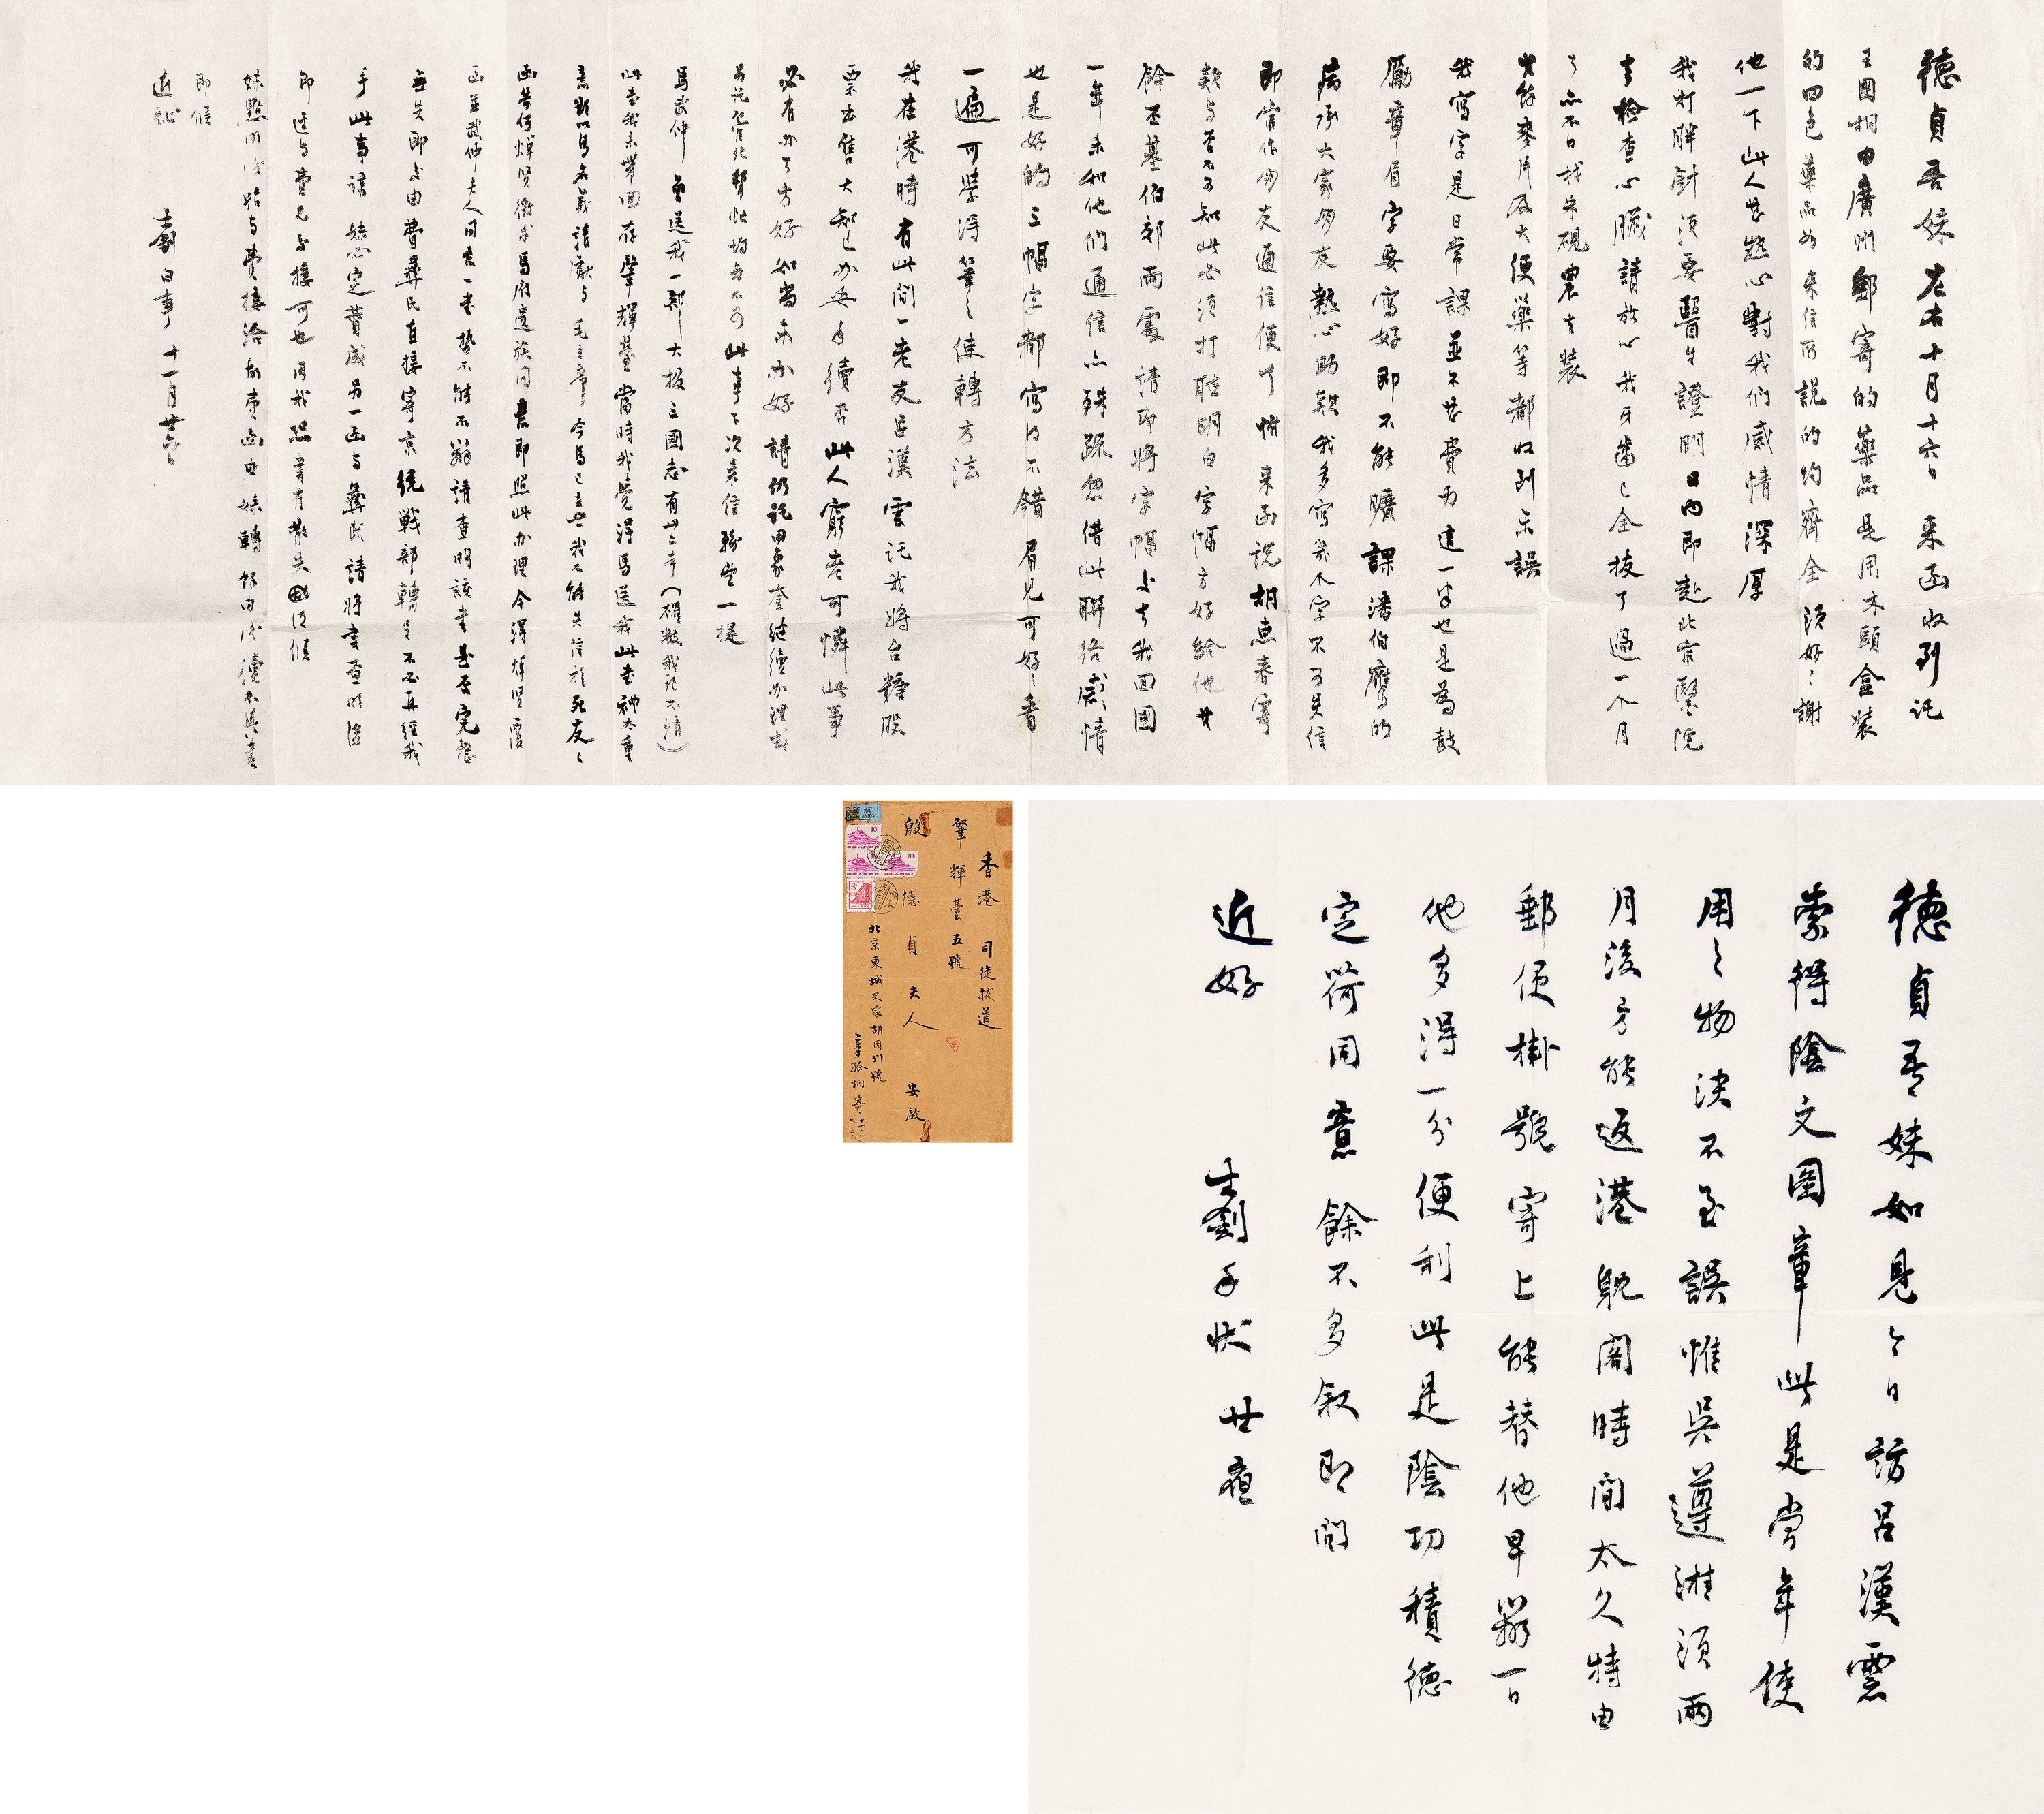 德貞吾妹左右十月十六日來函收到託
王國桐由廣州郵寄的藥品是用木頭盒裝
的四色藥品如來信所說的均齊全須好好謝
他一下此人甚熱心對我們感情深厚
我打胖針須要醫生證明日內即赴北京醫院
去檢查心臟請放心我牙齒已全拔了過一个月
了亦不日找朱硯農去裝
麥片及大便藥等都收到無誤
我寫字是日常課並不甚費力這一半也是為鼓
勵章眉字要寫好即不能曠課潘伯鷹的
病承大家朋友熱心助款我多寫幾个字不可失信
即當作朋友通信便了惟來函說胡惠春寄
款與否不可知此必須打聽明白字幅方好給他其
餘丕基伯郊兩處請即將字幅交去我回國
一年未和他們通信亦殊疏忽借此聯絡感情
也是好的三幅字都寫得不錯眉兒可好好看
一遍可學得筆筆使轉方法
我在港時有此間一老友呂漢雲託我將台糖股
票出售大知已办妥手續否此人窮老可憐此事
必有办了方好如尚未办好請仍託田象奎继續办理或
另託管北幫忙均無不可此事下次來信務望一提
馬武仲曾送我一部大板三國志有廿二本(確數我記不清)
此書我未帶回存肇輝臺當時我覺得馬送我此書神太重
意斯以馬名義請獻與毛主席今馬已去世我不能失信於死友
函告何焯賢徵求馬府遺族同意即照此办理今得焯賢覆
函並武仲夫人同意一書勢不能不辦請查明該書是否完整
無失即交由費彝民直接寄京統戰部轉呈不必再經我
手此事請妹必定費成另一函與彝民請將書查明後
即送與費兄交接可也因我恐書有散失須候
妹點明後始與費接洽故費函由妹轉餘由後續不具並
即候
近祉
士釗白事 十一月廿六日
香港 司徒拔道
肇輝臺五號
殷德貞夫人 安啟
北京東城史家胡同51號
章孤桐寄
德貞吾妹如見今日訪呂漢雲
索得陰文圖章此是當年使
用之物決不至誤惟吳遵湘須兩
月後方能返港躭閣時間太久特由
郵便掛號寄上能替他早辦一日
他多得一分便利此是陰功積德
定荷同意餘不多敘即問
近好
士釗手狀 廿夜